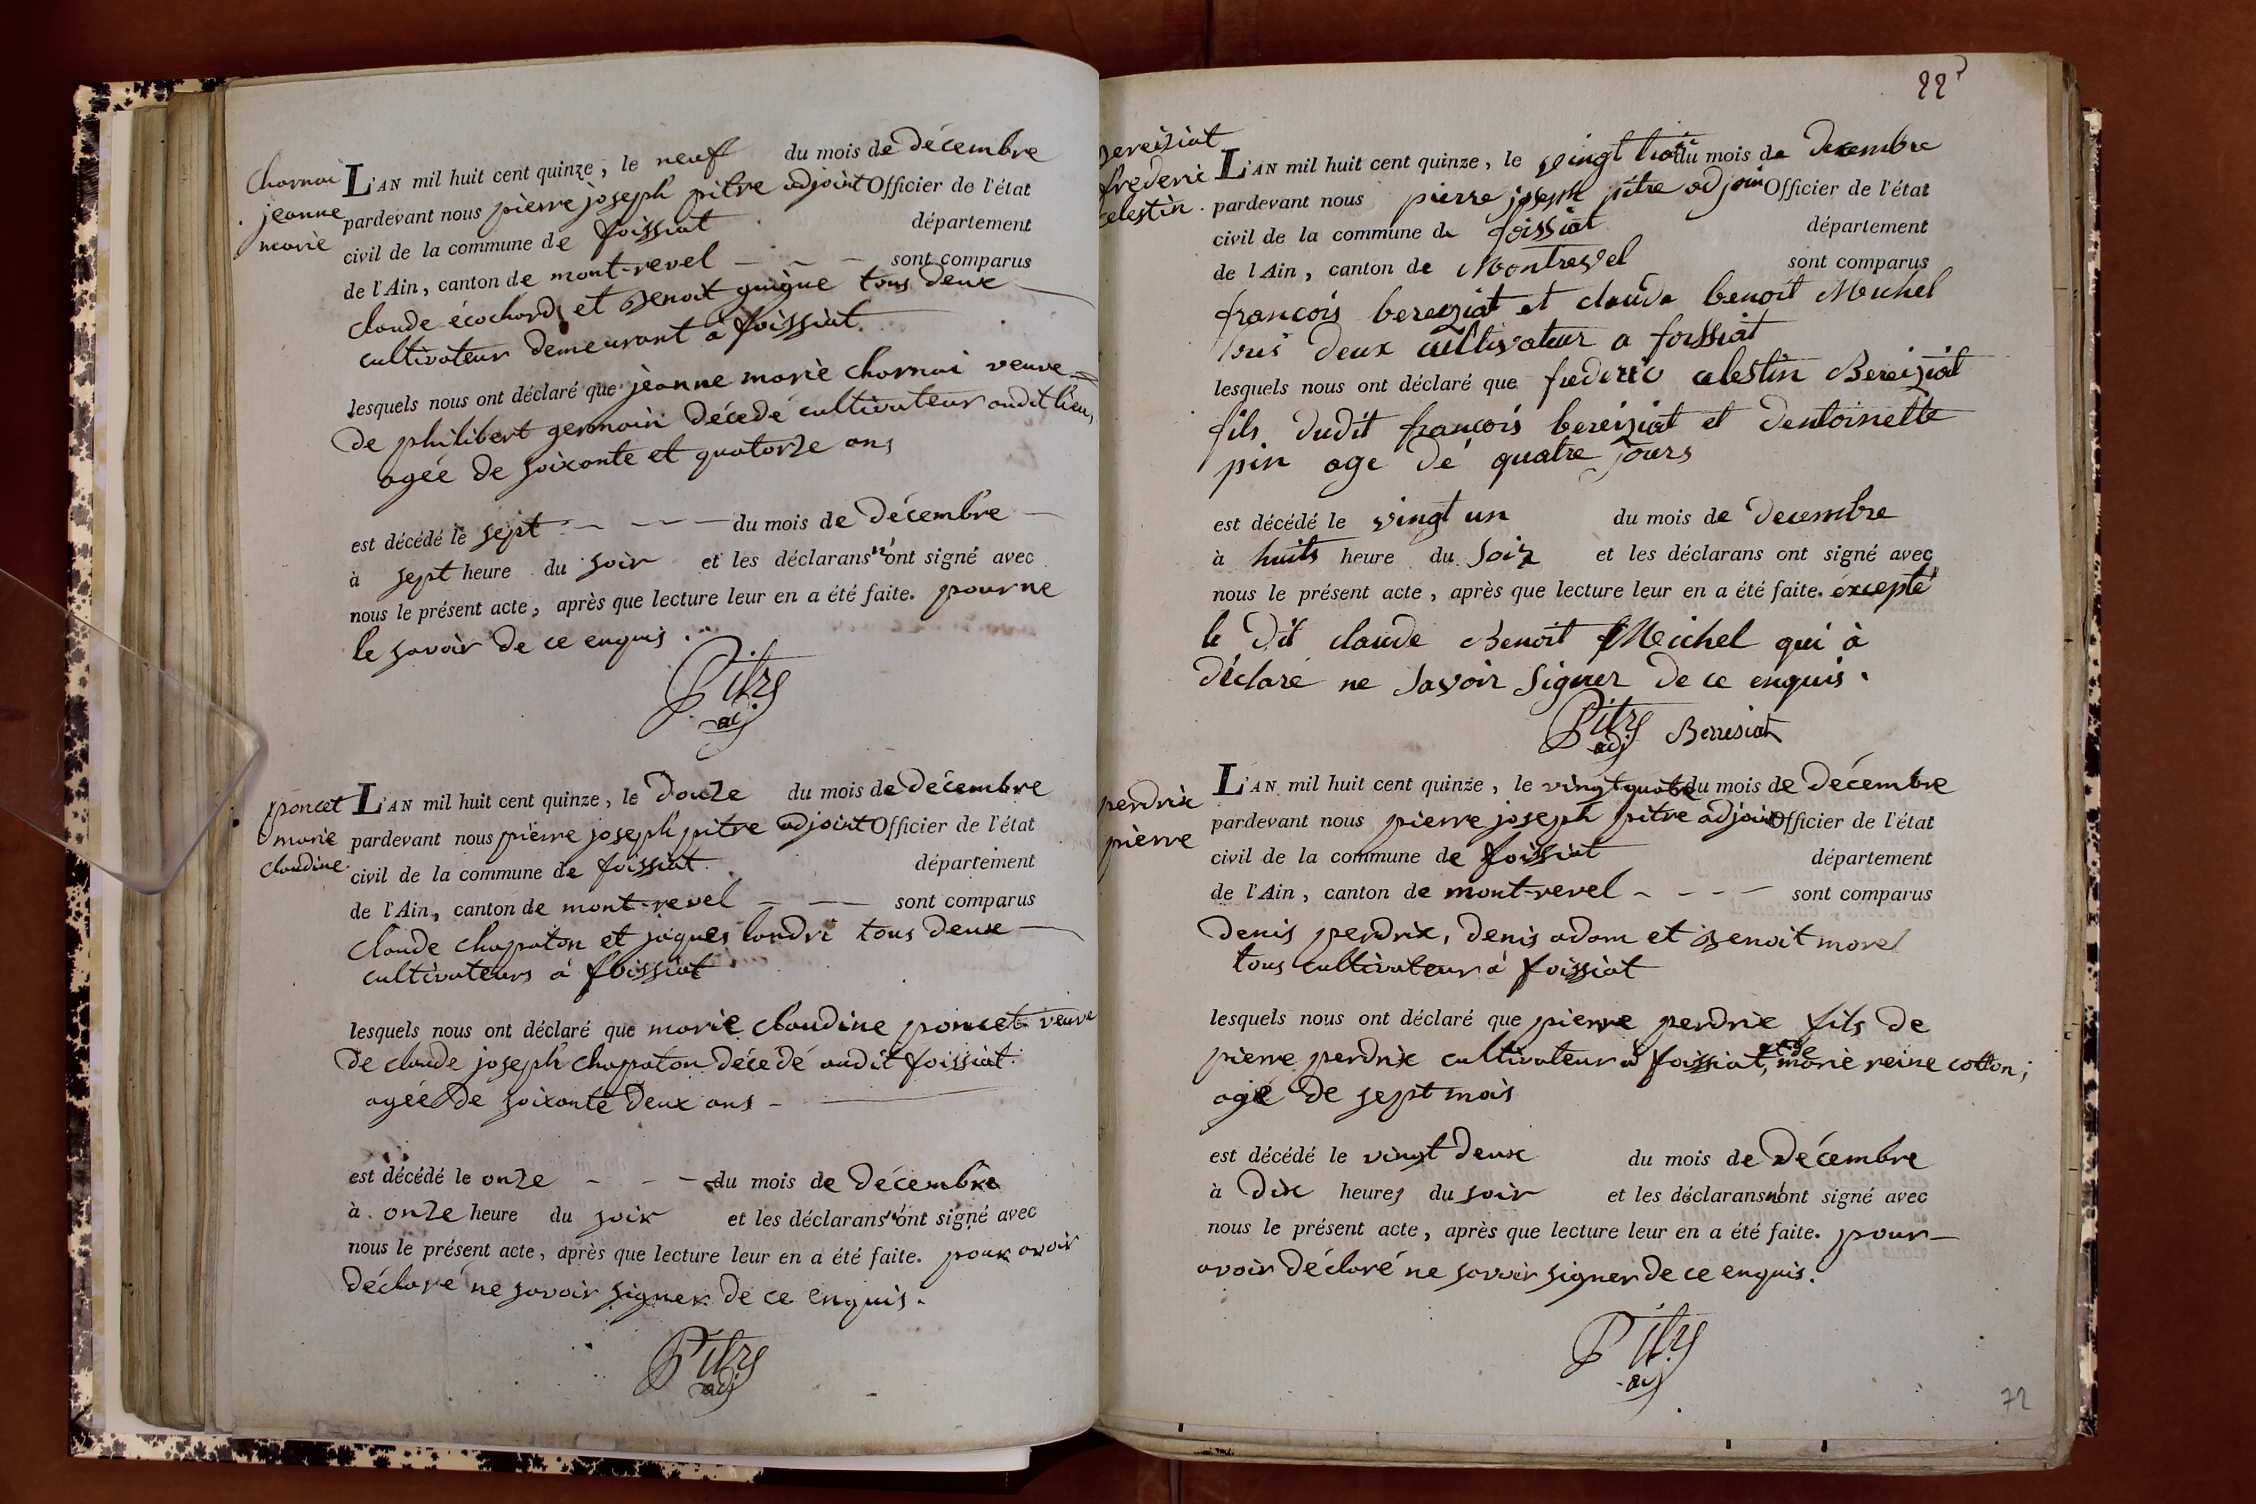 charnai
jeanne
marie
L'AN mil huit cent quinze, le neuf du mois de décembre
pardevant nous pierre joseph pitre adjoint Officier de l'état
civil de la commune de foissiat département
de l'Ain, canton de mont-revel — — — sont comparus
claude écochard et Benoit guigue tous deux
cultivateur demeurant a foissiat.
lesquels nous ont déclaré que jeanne marie charnai veuve
de philibert germain décedé cultivateur audit lieu,
agéé de soixante et quatorze ans
est décédé le sept — — — du mois de décembre —
à sept heure du soir et les déclarans n'ont signé avec
nous le présent acte, après que lecture leur en a été faite. pour ne
le savoir de ce enquis.
Pitre
adj
poncet
marie
claudine.
L'AN mil huit cent quinze, le douze du mois de décembre
pardevant nous pierre joseph pitre adjoint Officier de l'état
civil de la commune de foissiat département
de l'Ain, canton de mont-revel — — sont comparus
claude chapaton et jaques landri tous deux —
cultivateurs á foissiat
lesquels nous ont déclaré que marie claudine poncet veuve
de claude joseph chapaton décedé audit foissiat.
agéé de soixante deux ans —
est décédé le onze - - - du mois de décembre
à onze heure du soir et les déclarans n'ont signé avec
nous le présent acte, après que lecture leur en a été faite. pour avoir
déclaré ne savoir signer de ce enquis.
Pitre
adj
22
bereisiat
frederic
celestin.
L'AN mil huit cent quinze, le vingt trois du mois de decembre
pardevant nous pierre joseph pitre adjoin Officier de l'état
civil de la commune de foissiat département
de l'Ain, canton de Montrevel sont comparus
francois bereiziat et claude benoit Michel
tous deux cultivateur a foissiat
lesquels nous ont déclaré que frederic celestin Bereiziat
fils dudit francois bereiziat et dentoinette
pin age de quatre jours
est décédé le vingt un du mois de decembre
à huits heure du soir et les déclarans ont signé avec
nous le présent acte, après que lecture leur en a été faite. éxcepté
le dit claude Benoit Meichel qui à
déclaré ne savoir signer de ce enquis.
Pitre
adj Beresiat
perdrix
pierre
L'AN mil huit cent quinze, le vingt quatre du mois de décembre
pardevant nous pierre joseph pitre adjoint Officier de l'état
civil de la commune de foissiat département
de l'Ain, canton de mont-revel - - - — sont comparus
denis perdrix, denis adam et Benoit morel
tous cultivateur á foissiat
lesquels nous ont déclaré que pierre perdrix fils de
pierre perdrix cultivateur á foissiat, et de marie reine cotton;
agé de sept mois
est décédé le vingt deux du mois de décembre
à dix heures du soir et les déclarans n'ont signé avec
nous le présent acte, après que lecture leur en a été faite. pour —
avoir déclaré ne savoir signer de ce enquis.
Pitre
adj
72